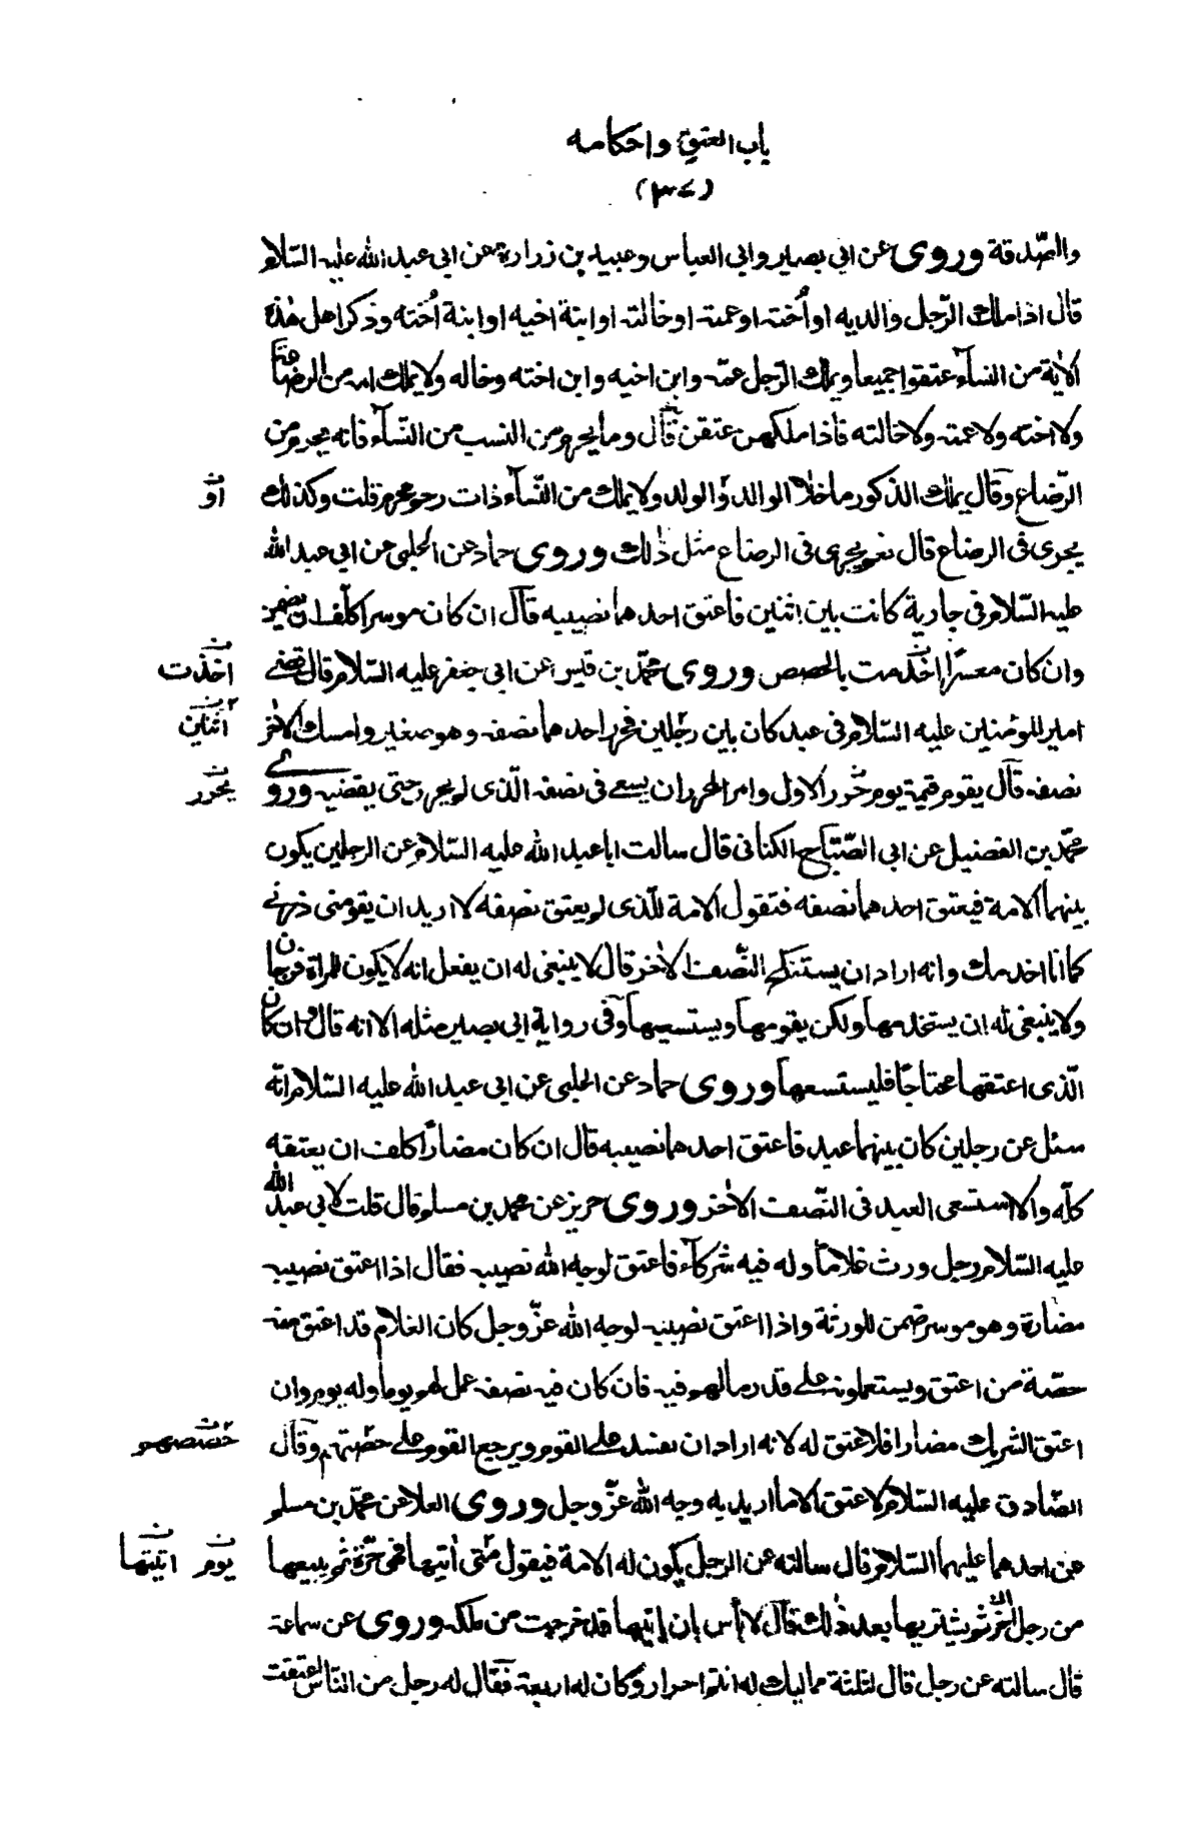 باب العتق واحكامه
(٣٤)
والصّدقة وروى عن ابى بصير وابى العباس وعبيد بن زرارة عن ابى عبد الله عليه السّلام
قال اذا ملك الرّجل والديه او اُخته او عمته او خالته او ابنة اخيه او ابنة اُخته وذكر اهل هٰذه
الاٰية من النسآء عتقوا جميعا ويملك الرّجل عمّه وابن اخيه وابن اخته وخاله ولا يملك امه من الرضاعة
ولا اخته ولا عمته ولا خالته فاذا ملكهن عتقن قال وما يحرم من النسب من النّسآء فانه يحرم من
الرّضاع وقال يملك الذكور ما خلا الوالد والولد ولا يملك من النّسآء ذات رحم محرم قلت وكذلك
او
يجرى فى الرضاع قال نعم يجرى فى الرضاع مثل ذٰلك وروى حماد عن الحلبى عن ابى عبد الله
عليه السّلام فى جارية كانت بين اثنين فاعتق احدهما نصيبه قال ان كان موسرا كلّف ان يضمن
وان كان معسرًا اخدمت بالحصص وروى محمّد بن قيس عن ابى جعفر عليه السّلام قال قضى
اخذت
امير المؤمنين عليه السّلام فى عبد كان بين رجلين فحرر احدهما نصفه وهو صغير وامسك الاٰخر
اثنين
نصفه قال يقوم قيمة يوم حرّر الاول وامر المحرر ان يسعى فى نصفه الّذى لم يحرر حتى يقضيه وروى
يحرر
محمّد بن الفضيل عن ابى الصّبّاح الكنانى قال سالت ابا عبد الله عليه السّلام عن الرجلين يكون
بينهما الامة فيعتق احدهما نصفه فتقول الامة للّذى لم يعتق نصفه لا اريد ان يقومنى ذرنى
كما انا اخدمك وانه اراد ان يستنكح النّصف الاٰخر قال لا ينبغى له ان يفعل انه لا يكون للمراة فرجان
ولا ينبغى له ان يستخدمها ولكن يقومها ويستسعيها وفى رواية ابى بصير مثله الا انه قال وان كان
الّذى اعتقها محتاجًا فليستسعها وروى حماد عن الحلبى عن ابى عبد الله عليه السّلام انّه
سئل عن رجلين كان بينهما عبد فاعتق احدهما نصيبه قال ان كان مضارّا كلف ان يعتقه
كلّه والا استسعى العبد فى النّصف الاٰخر وروى حريز عن محمد بن مسلم قال قلت لابى عبد الله
عليه السّلام رجل ورث غلامًا وله فيه شركآء فاعتق لوجه الله نصيبه فقال اذا اعتق نصيبه
مضارة وهو موسر ضمن للورثة واذا اعتق نصيبه لوجه الله عزّ وجل كان الغلام قد اعتق منه
حصّة من اعتق ويستعملونه على قدر ما لهم فيه فان كان فيه نصفه عمل لهم يوما وله يوم وان
اعتق الشريك مضارا فلا عتق له لانه اراد ان يفسد على القوم ويرجع القوم على حصّتهم وقال
حصصهم
الصّادق عليه السّلام لا عتق الا ما اريد به وجه الله عزّ وجل وروى العلا عن محمّد بن مسلم
عن احدهما عليهما السّلام قال سالته عن الرجل يكون له الامة فيقول متى اٰتيها فهى حرّة ثم يبيعها
يوم اتيتها
من رجل اخر ثم يشتريها بعد ذٰلك قال لا باس بان ياتيها قد خرجت من ملكه وروى عن سماعة
قال سالته عن رجل قال لثلثة مماليك له انتم احرار وكان له اربعة فقال له رجل من النّاس اعتقت